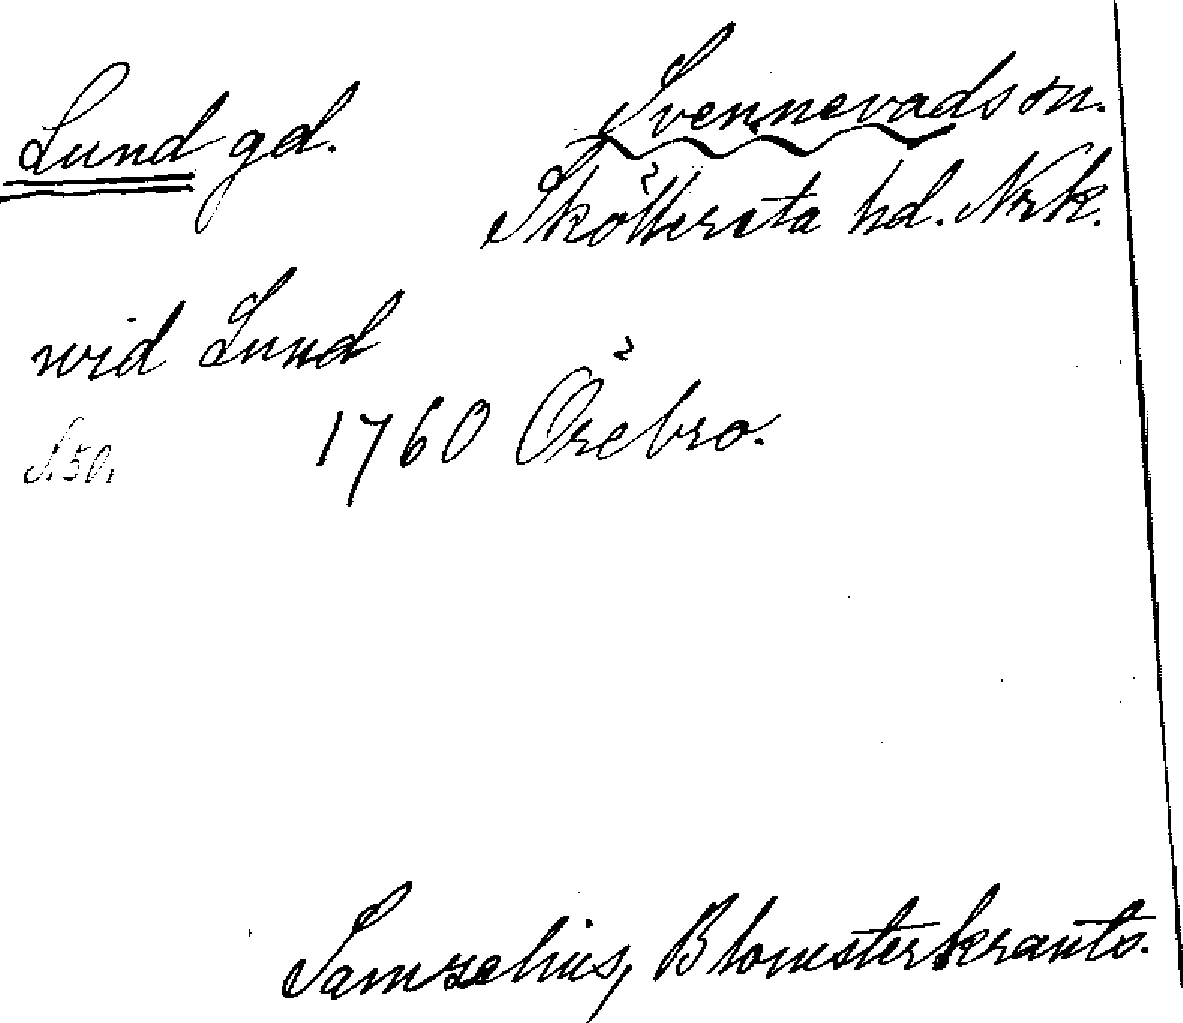 Lund gd. Svennevads sn.
Sköllersta hd. Nrk.
wid Lund
1760 Örebro.
Samzelius, Blomsterkrants.